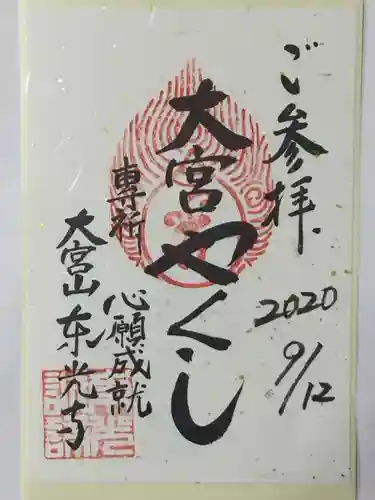 ご参拝
2020
9/12
大宮やくし
専祈
心願成就
大宮山东光寺